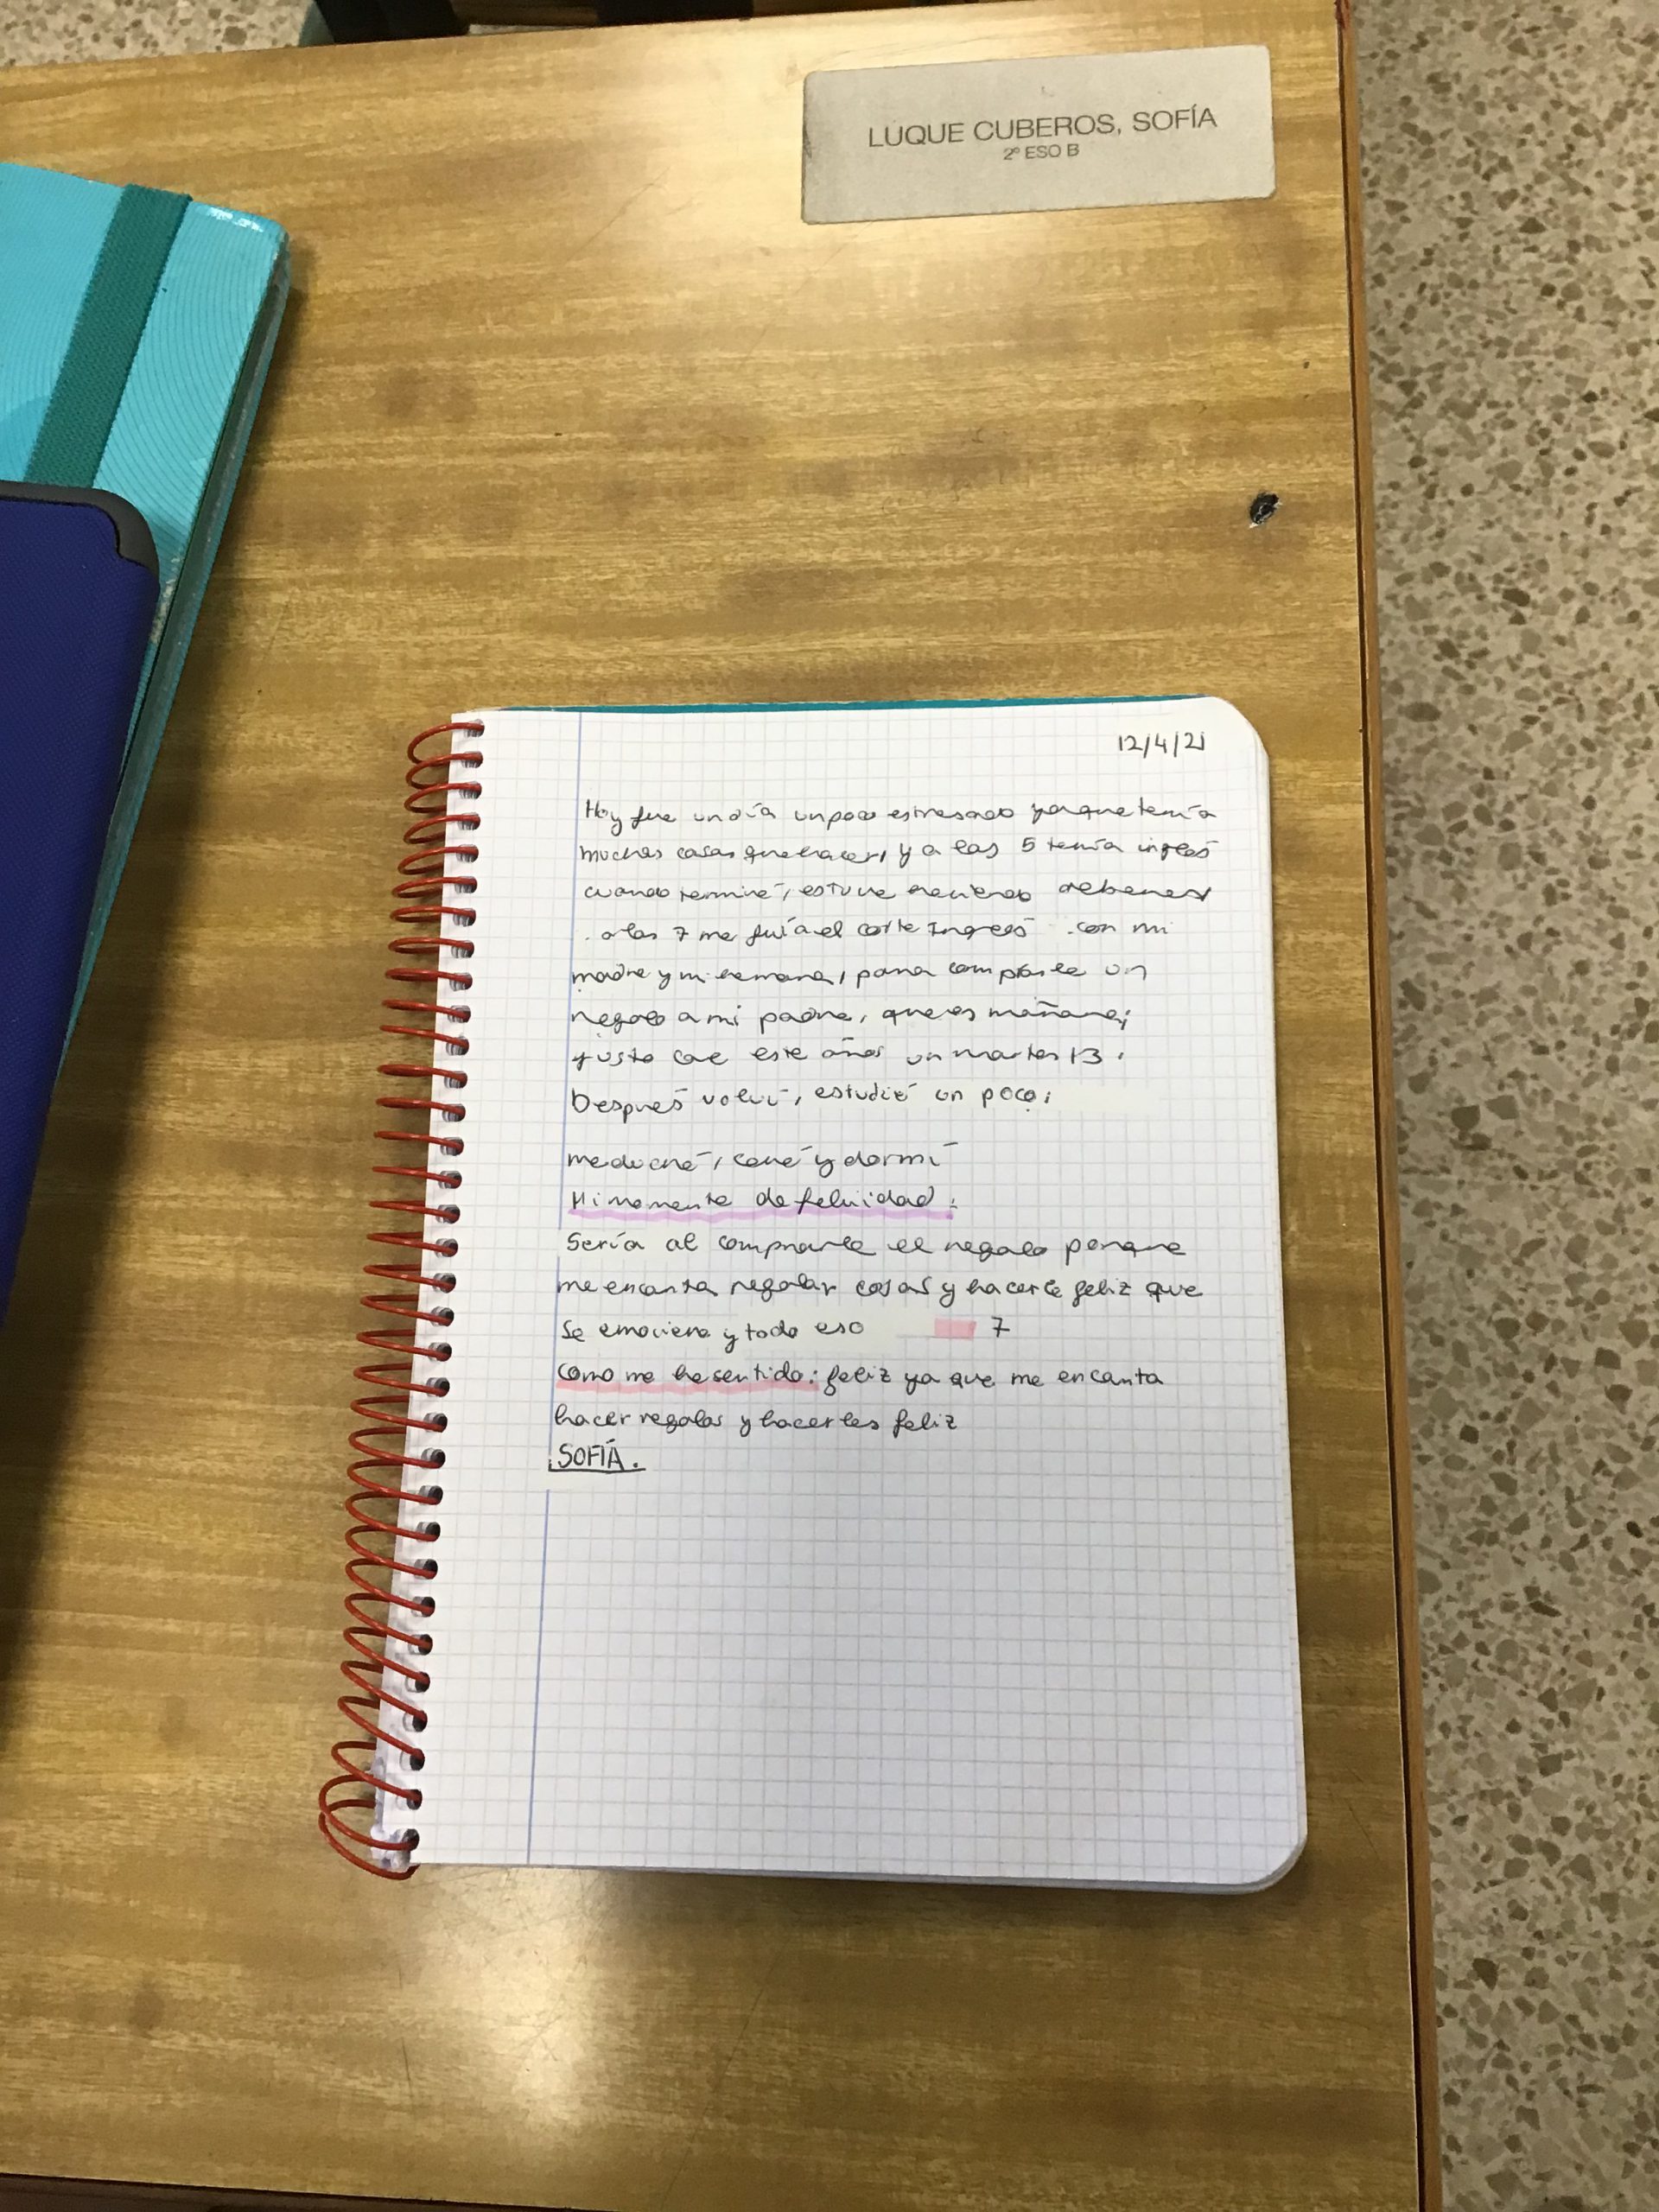 LUQUE CUBEROS, SOFÍA
2º ESO B
12/4/21
Hoy fue un día un poco estresado porque tenía
muchas cosas que hacer, y a las 5 tenía inglés
cuando terminé, estuve haciendo deberes
a las 7 me fui a el corte Inglés con mi
madre y mi hermana, para comprarle un
regalo a mi padre, que es mañana;
justo cae este años un martes 13.
Después volví, estudié un poco;
me duché, cené y dormí
Mi momento de felicidad:
Sería al comprarle el regalo porque
me encanta regalar cosas y hacerle feliz que
se emociene y todo eso 7
como me he sentido: feliz ya que me encanta
hacer regalos y hacerles feliz
SOFÍA.